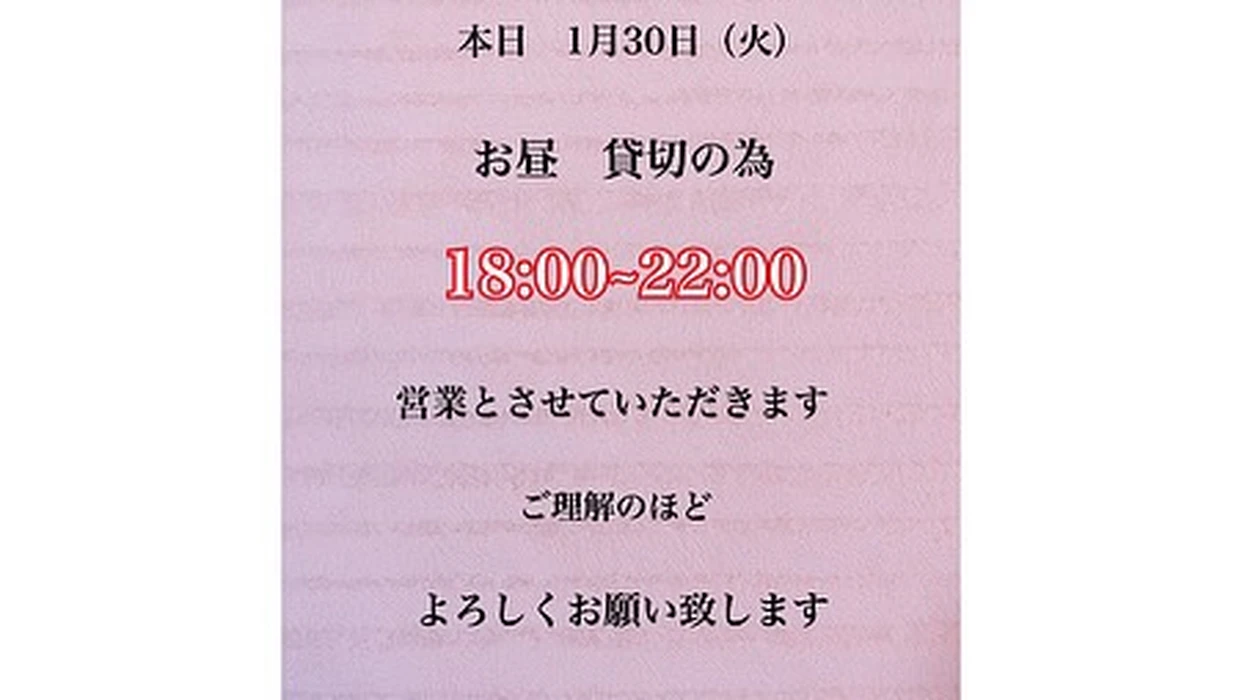 本日　1月30日（火）
お昼　貸切の為
18:00~22:00
営業とさせていただきます
ご理解のほど
よろしくお願い致します